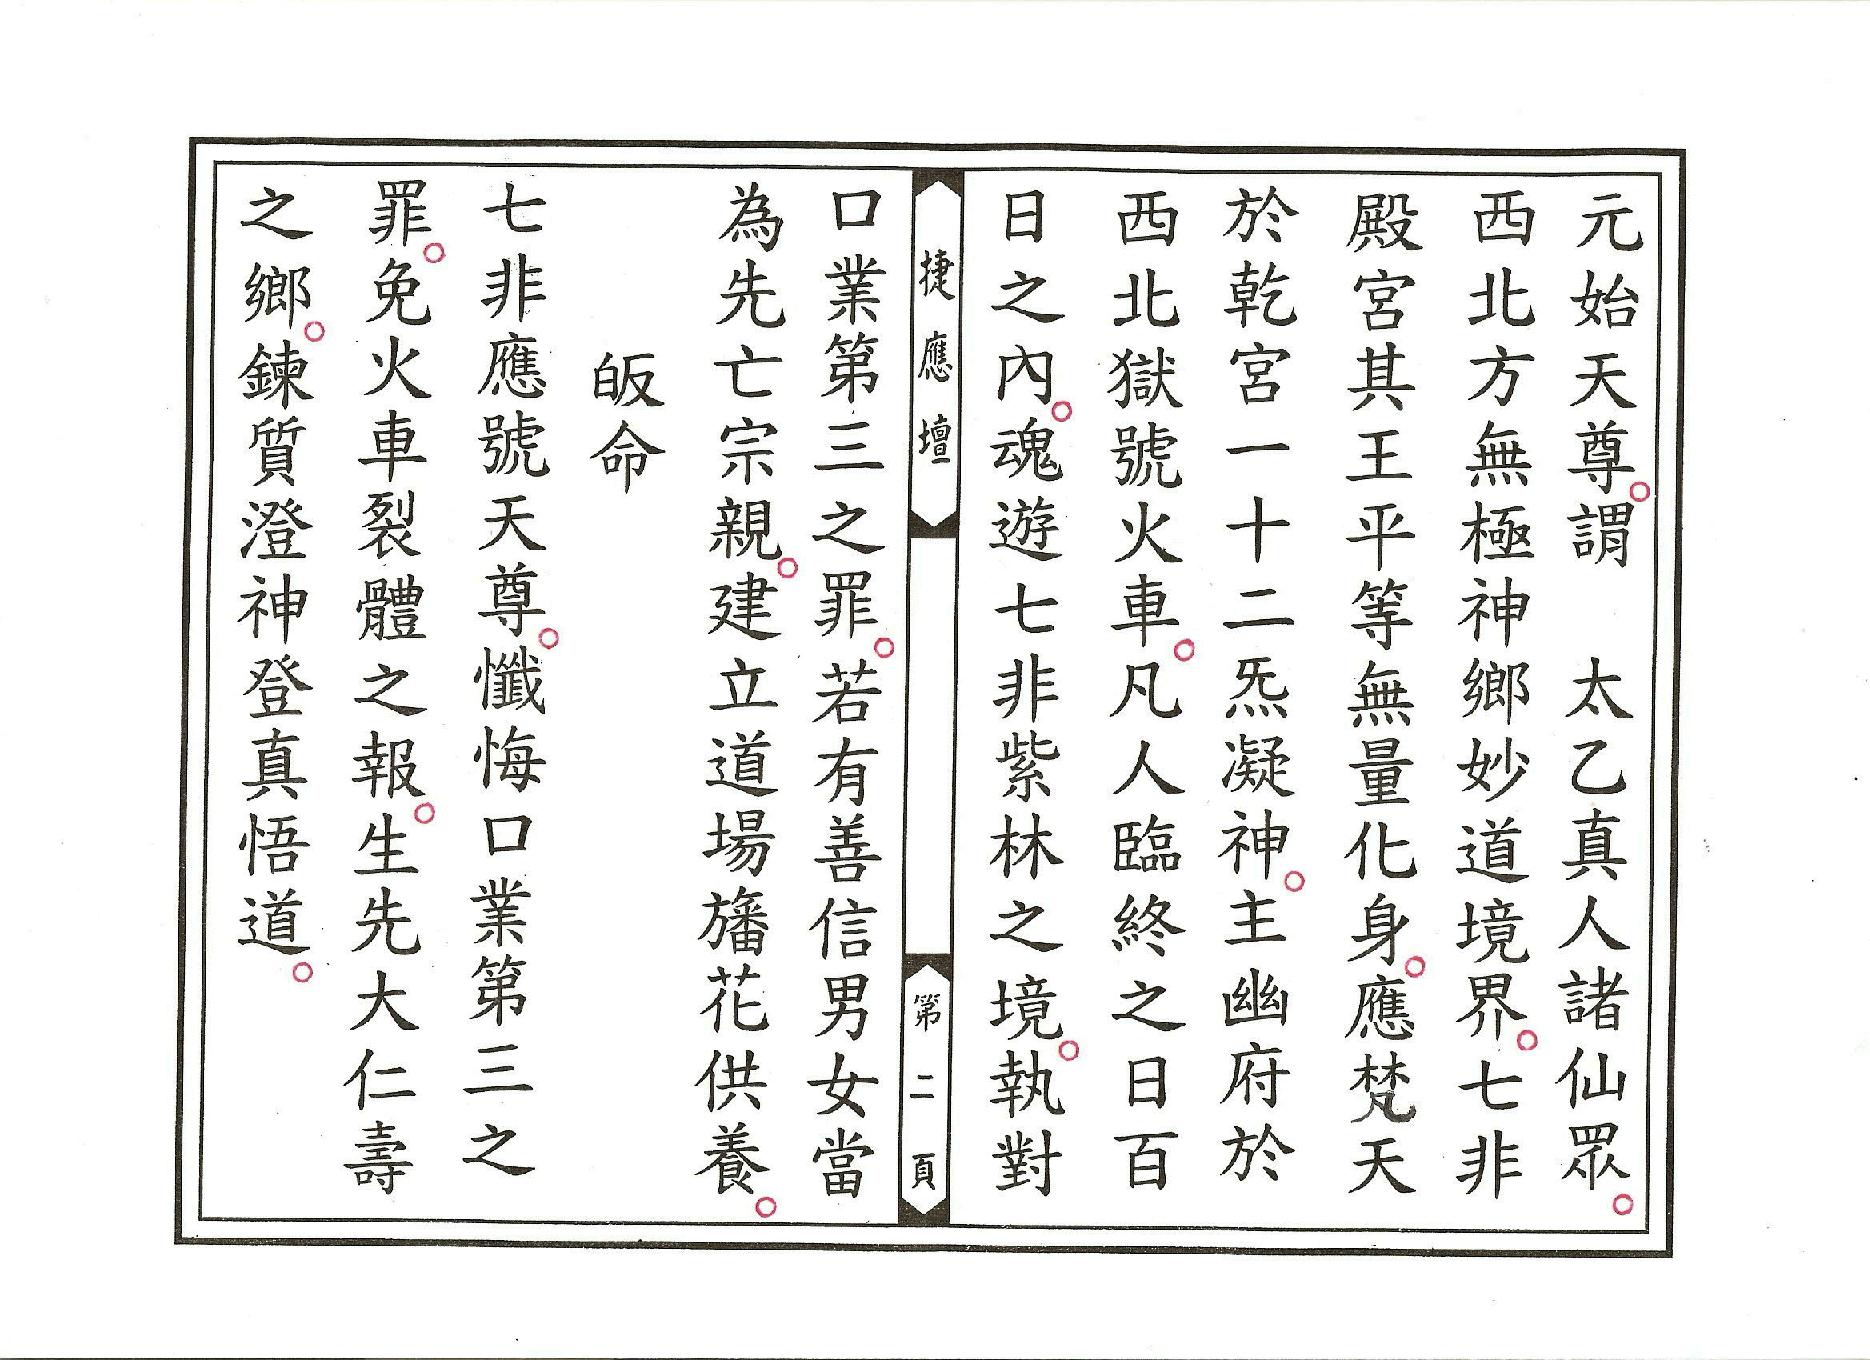 元始天尊。謂　太乙真人諸仙眾。
西北方無極神鄉妙道境界。七非
殿宮其王平等無量化身。應梵天
於乾宮一十二炁凝神。主幽府於
西北獄號火車。凡人臨終之日百
日之內。魂遊七非紫林之境。執對
捷應壇
第二頁
口業第三之罪。若有善信男女當
為先亡宗親。建立道場旛花供養。
皈命
七非應號天尊。懺悔口業第三之
罪。免火車裂體之報。生先大仁壽
之鄉。鍊質澄神登真悟道。